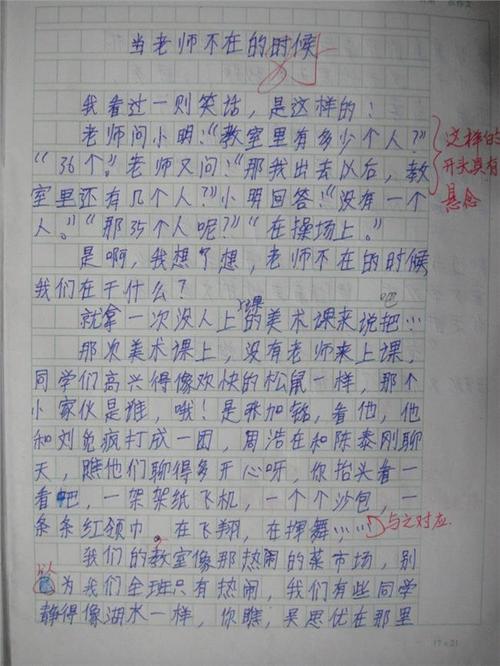 当老师不在的时候
我看过一则笑话，是这样的：
老师问小明：“教室里有多少个人？”
“36个。”老师又问：“那我出去以后，教
室里还有几个人？”小明回答：“没有一个
人。”“那35个人呢？”“在操场上。”
这样的
开头具有
悬念
是啊，我想了想，老师不在的时候
我们在干什么？
就拿一次没人上课的美术课来说把…
吧
那次美术课上，没有老师来上课，
同学们高兴得像欢快的松鼠一样，那个
小家伙是谁，哦！是张加铭，看他，他
和刘兔疯打成一团，周浩在和陈泰刚聊
天，瞧他们聊得多开心呀，你抬头看一
看吧，一架架纸飞机，一个个沙包，一
条条红领巾。在飞翔，在挥舞……
与之对应
我们的教室像那热闹的菜市场，别
以为我们全班只有热闹，我们有些同学
静得像湖水一样，你瞧，吴思优在那里